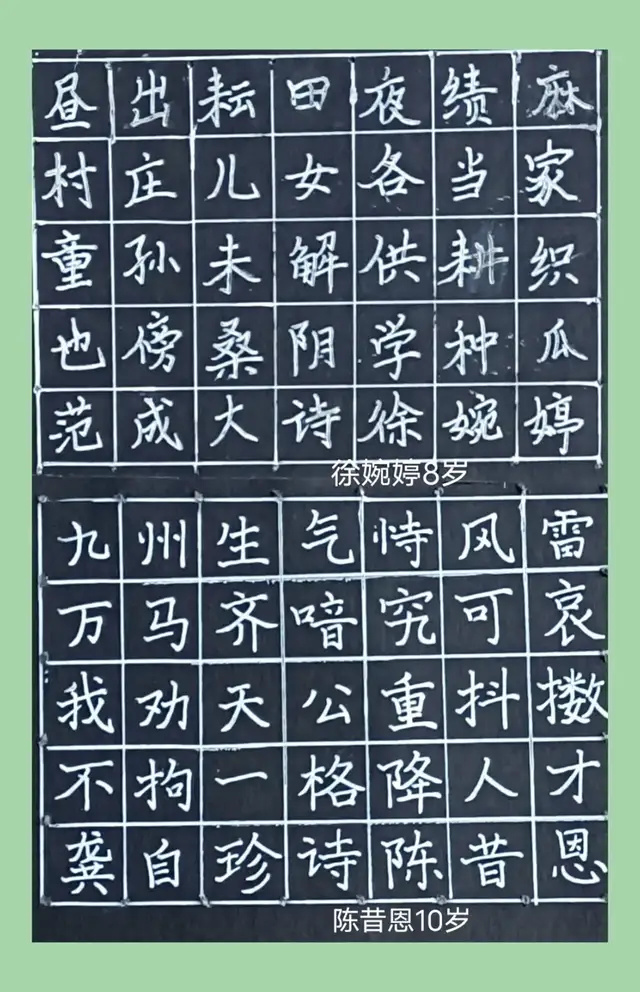 昼出耘田夜绩麻
村庄儿女各当家
童孙未解供耕织
也傍桑阴学种瓜
范成大诗徐婉婷
徐婉婷8岁
九州生气恃风雷
万马齐喑究可哀
我劝天公重抖擞
不拘一格降人才
龚自珍诗陈昔恩
陈昔恩10岁